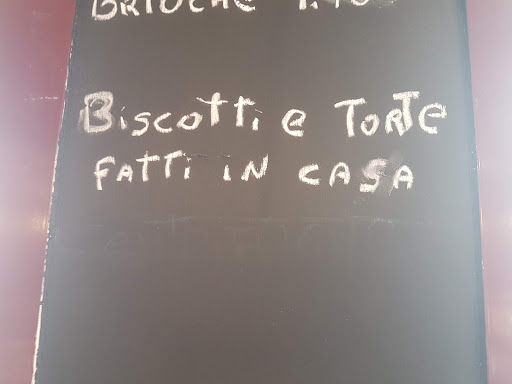 BRIOCHE
BiscoTTi e TORTe
FATTi iN CASA